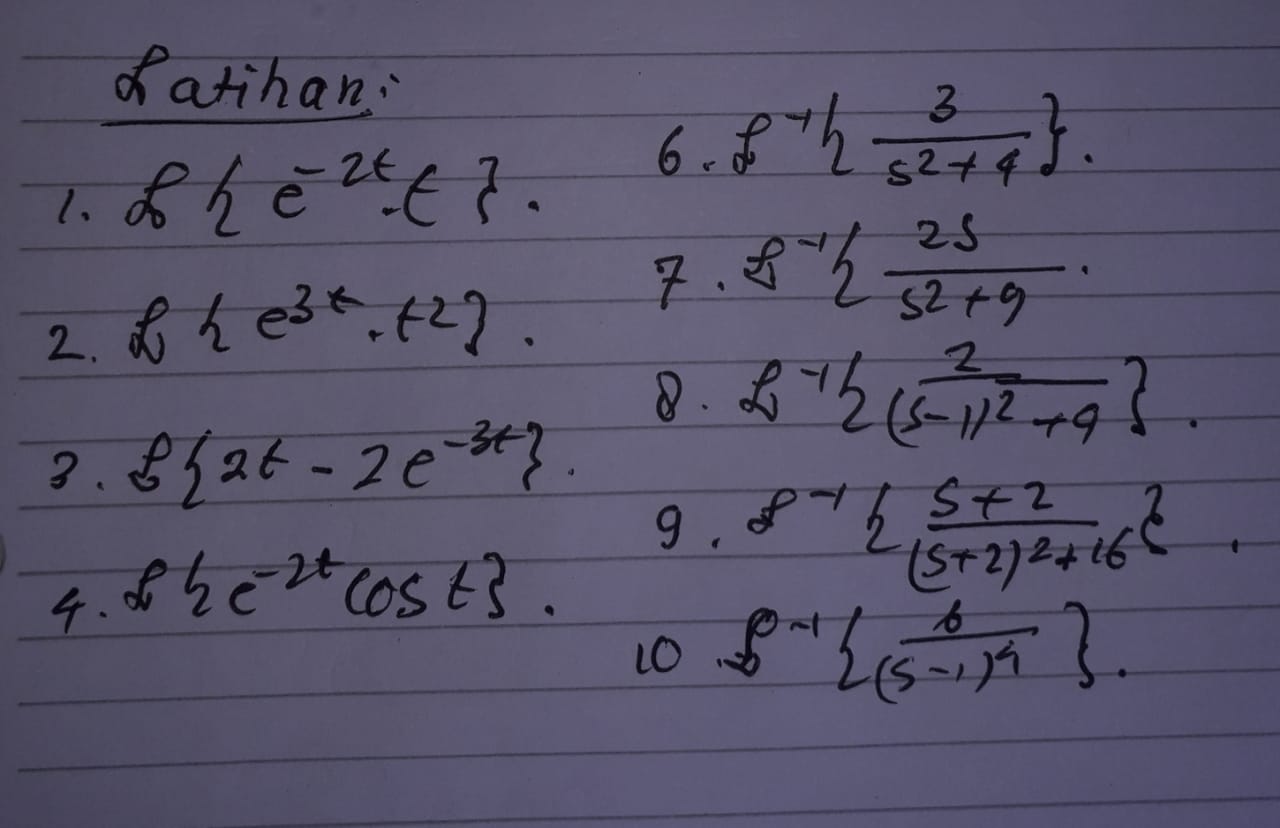 Latihan:
1. ℒ{e^-2t.t}.
2. ℒ{e^3t.t2}.
3. ℒ{2t - 2e^-3t}.
4. ℒ{e^-2t cos t}.
6. ℒ^-1{3/(s^2+4)}.
7. ℒ^-1{2s/(s^2+9).
8. ℒ^-1{2/((s-1)^2+9)}.
9. ℒ^-1{(s+2)/((s+2)^2+16)}.
10. ℒ^-1{6/(s-1)^4}.